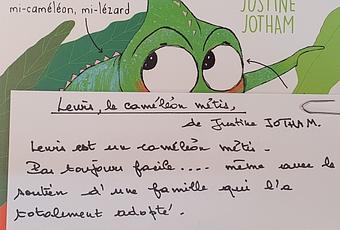 mi-caméléon, mi-lézard
JUSTINE
JOTHAM
Lewis, le caméléon métis,
de Justine JOTHAM.
Lewis est un caméléon métis.
Pas toujours facile.... même avec le
soutien d'une famille qui l'a
totalement adopté.